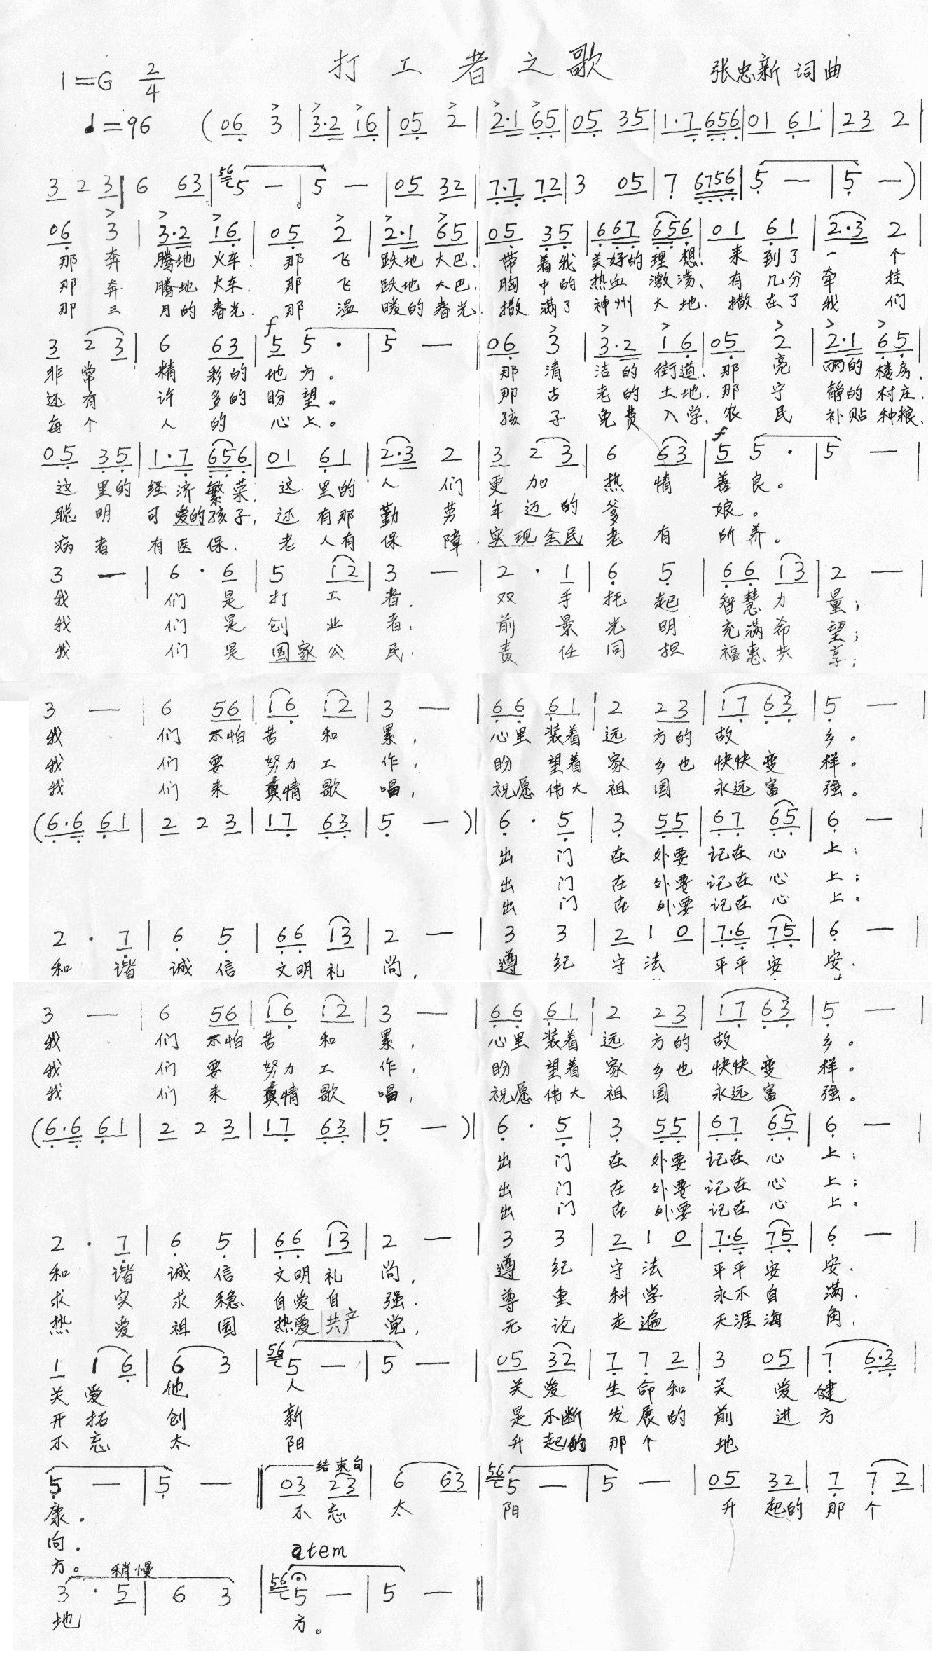 打工者之歌
1=G 2/4
张忠新 词曲
♩=96 (06 3 | 3·2 16 | 05 2 | 2·1 65 | 05 35 | 1·7 656 | 01 61 | 23 2 |
3 2 3 | 6 63 | 565 — | 5 — | 05 32 | 7·7 72 | 3 05 | 7 6756 | 5 — | 5 —)|
06 3 | 3·2 16 | 05 2 | 2·1 65 | 05 35 | 667 656 | 01 61 | 2·3 2 |
那 奔 腾地 火车. 那 飞 跌地 大巴. 带 着我 美好的 理想. 来 到了 一 个
那 奔 腾地 火车. 那 飞 跌地 大巴. 胸 中的 热血 激荡. 有 几分 牵 挂
那 三 月的 春光. 那 温 暖的 春光. 撒 满了 神州 大地. 撒 在了 我 们
f
3 2 3 | 6 63 | 5 5 · | 5 — | 06 3 | 3·2 16 | 05 2 | 2·1 65 |
非 常 精 彩的 地 方。 那 清 洁的 街道. 那 亮 丽的 楼房.
还 有 许 多的 盼 望。 那 古 老的 土地. 那 宁 静的 村庄.
每 个 人 的 心 上。 孩 子 免费 入学. 农 民 补贴 种粮.
f
05 35 | 1·7 656 | 01 61 | 2·3 2 | 3 2 3 | 6 63 | 5 5 · | 5 — |
这 里的 经济 繁荣. 这 里的 人 们 更 加 热 情 善 良。
聪 明 可爱的 孩子, 还 有那 勤 劳 年 迈 的 爹 娘。
病 者 有医 保. 老 人有 保 障. 实现 全民 老 有 所 养。
3 — | 6 · 6 | 5 12 | 3 — | 2 · 1 | 6 5 | 66 13 | 2 — |
我 们 是 打 工 者. 双 手 托 起 智慧 力 量;
我 们 是 创 业 者. 前 景 光 明 充满 希 望;
我 们 是 国家 公 民. 责 任 同 担 福惠 共 享;
3 — | 6 56 | 16 12 | 3 — | 66 61 | 2 23 | 17 63 | 5 — |
我 们 不怕 苦 和 累, 心里 装着 远 方的 故 乡。
我 们 要 努力 工 作, 盼 望着 家 乡也 快快 变 样。
我 们 来 真情 歌 唱, 祝愿 伟大 祖 国 永远 富 强。
(6·6 61 | 2 2 3 | 17 63 | 5 —)| 6 · 5 | 3 55 | 67 65 | 6 — |
出 门 在 外要 记在 心 上;
出 门 在 外要 记在 心 上;
出 门 在 外要 记在 心 上.
2 · 7 | 6 5 | 66 13 | 2 — | 3 3 | 2 1 0 | 7·6 75 | 6 — |
和 谐 诚 信 文明 礼 尚, 遵 纪 守 法 平平 安 安.
3 — | 6 56 | 16 12 | 3 — | 66 61 | 2 23 | 17 63 | 5 — |
我 们 不怕 苦 和 累, 心里 装着 远 方的 故 乡。
我 们 要 努力 工 作, 盼 望着 家 乡也 快快 变 样。
我 们 来 真情 歌 唱, 祝愿 伟大 祖 国 永远 富 强。
(6·6 61 | 2 2 3 | 17 63 | 5 —)| 6 · 5 | 3 55 | 67 65 | 6 — |
出 门 在 外要 记在 心 上;
出 门 在 外要 记在 心 上;
出 门 在 外要 记在 心 上.
2 · 7 | 6 5 | 66 13 | 2 — | 3 3 | 2 1 0 | 7·6 75 | 6 — |
和 谐 诚 信 文明 礼 尚, 遵 纪 守 法 平平 安 安.
求 实 求 稳 自爱 自 强. 尊 重 科 学 永不 自 满.
热 爱 祖 国 热爱 共产 党, 无 论 走 遍 天涯 海 角.
1 1 6 | 6 3 | 565 — | 5 — | 05 32 | 7 7 2 | 3 05 | 7 6·3 |
关 爱 他 人 关 爱 生 命和 关 爱 健
开 拓 创 新 是 不断 发 展的 前 进 方
不 忘 太 阳 升 起的 那 个 地
结束句
5 — | 5 — ‖ 03 23 | 6 63 | 565 — | 5 — | 05 32 | 7 7 2 |
康. 不 忘 太 阳 升 起的 那 个
向.
方。
稍慢 atem
3 · 5 | 6 3 | 565 — | 5 — ‖
地 方。